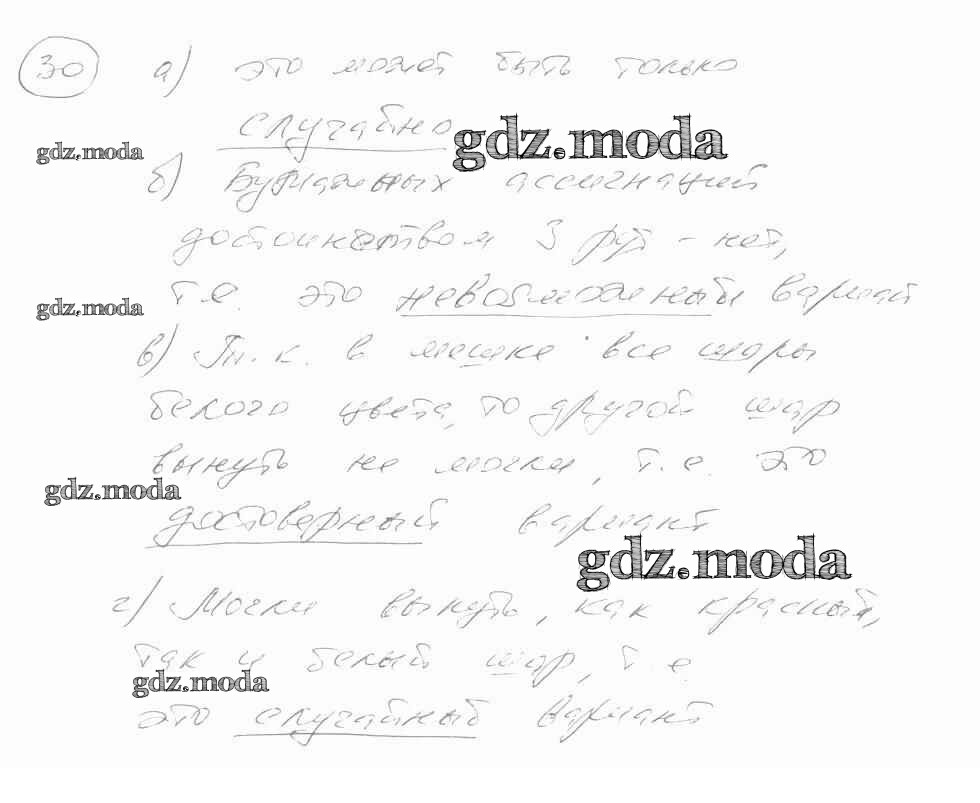 30 а) это может быть только
случайно gdz.moda
gdz.moda
б) Бумажных ассигнаций
достоинством 3 руб - нет,
т.е. это невозможный вариант
gdz.moda
в) Т.к. в мешке все шары
белого цвета, то другой шар
вынуть не могли, т.е. это
gdz.moda
достоверный вариант
gdz.moda
г) Могли вынуть, как красный,
так и белый шар, т.е.
gdz.moda
это случайный вариант